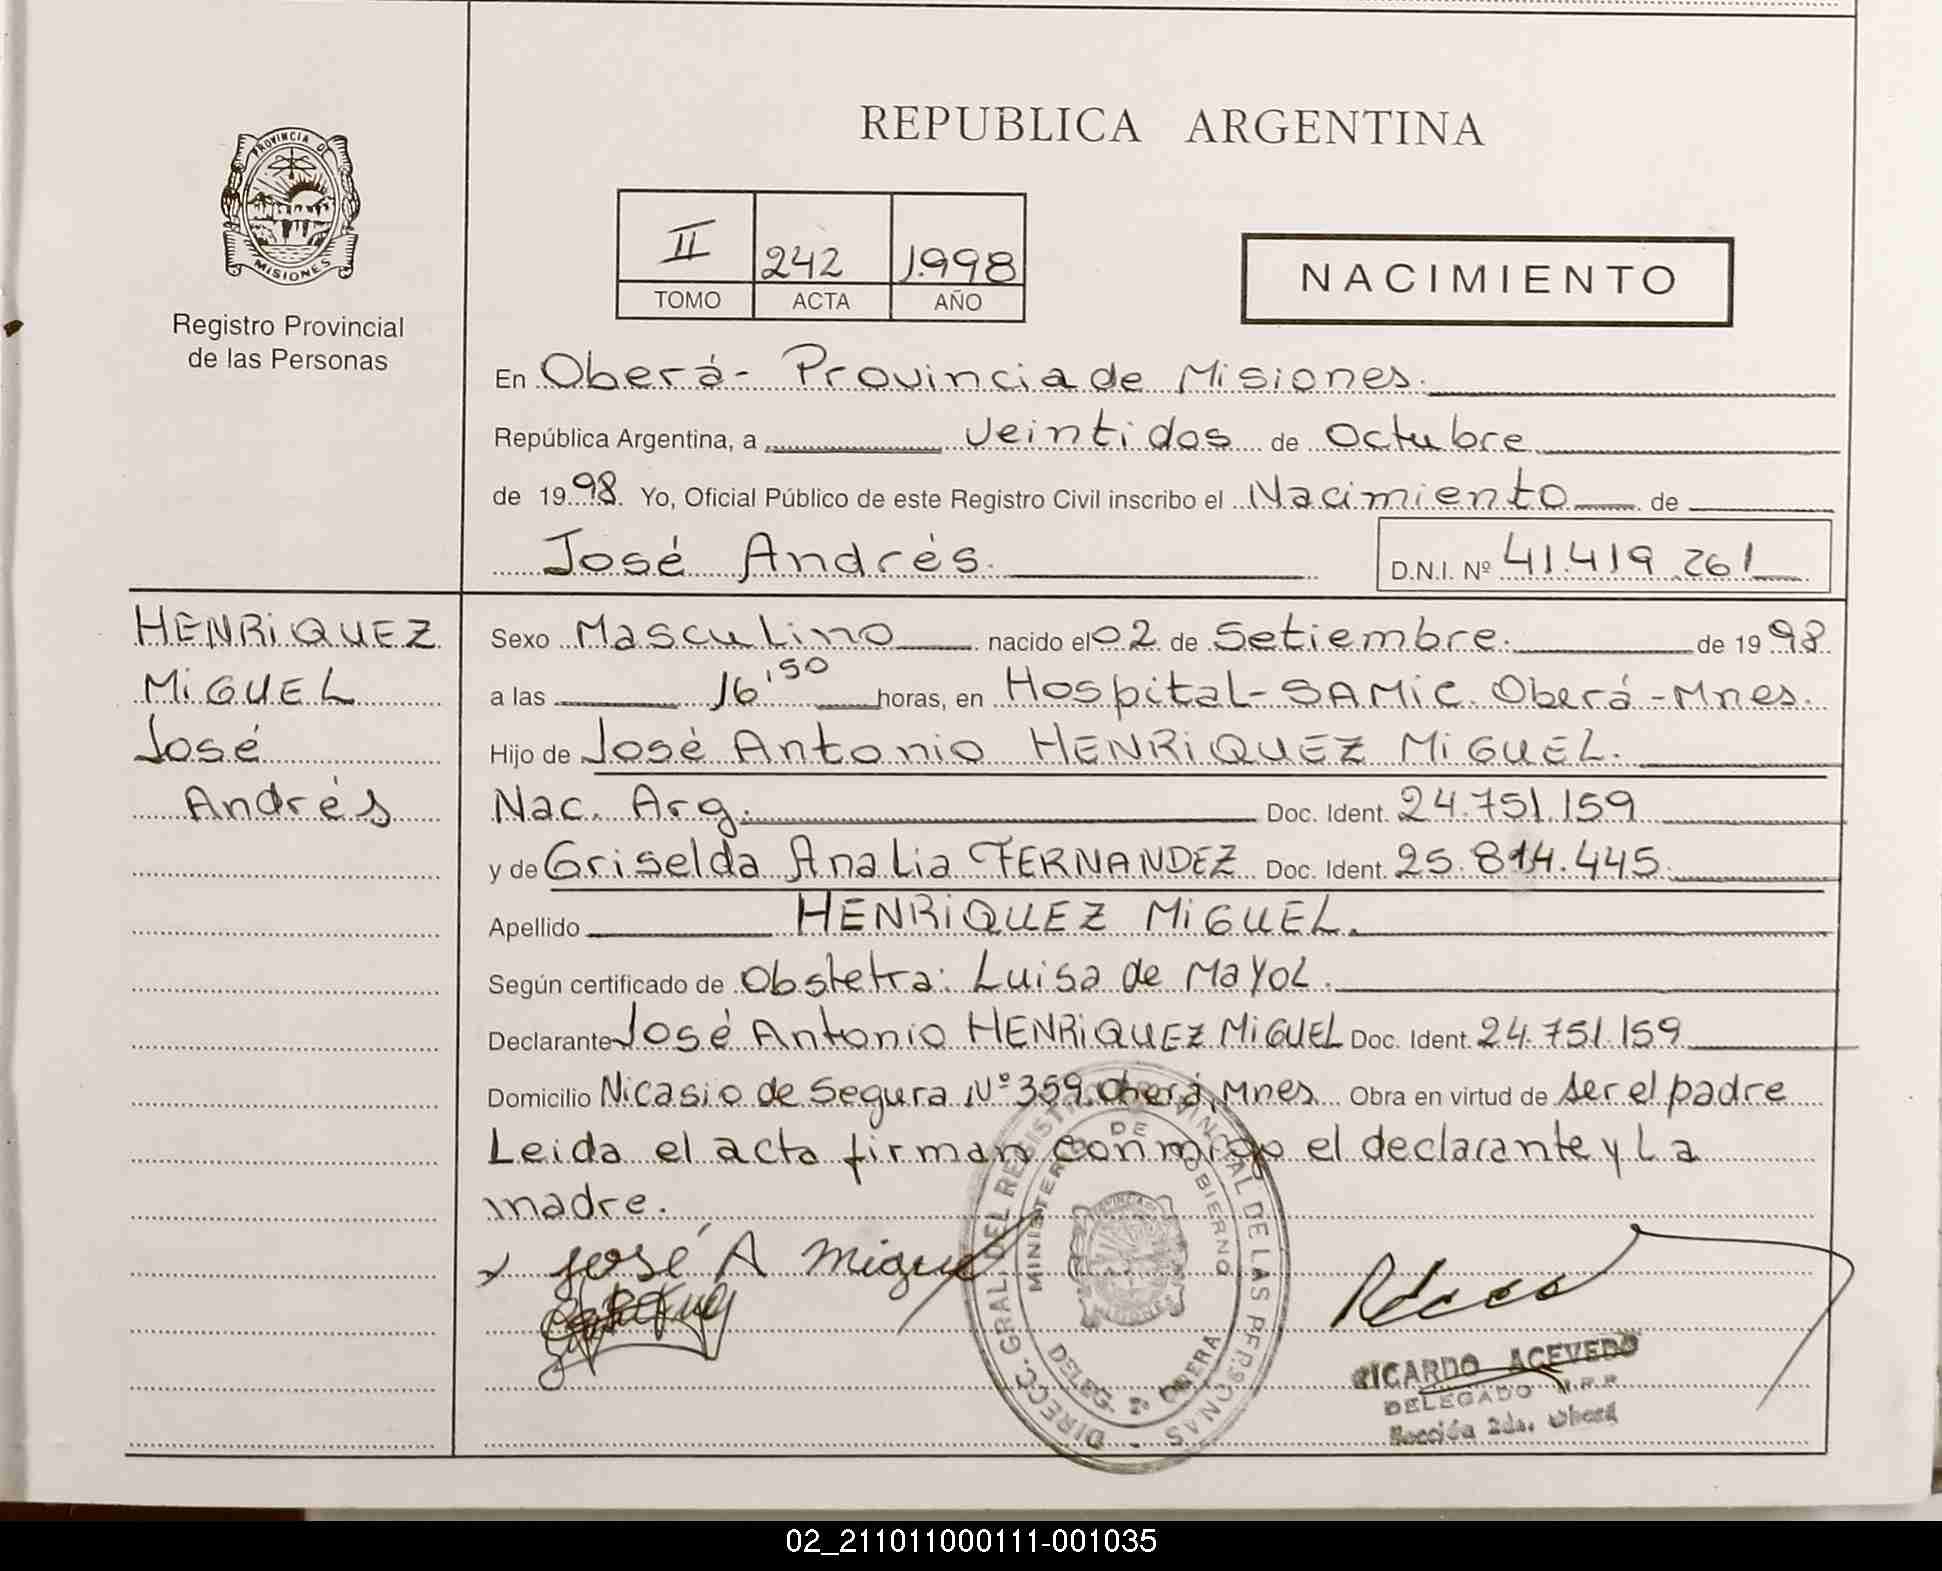 REPUBLICA ARGENTINA
PROVINCIA DE
MISIONES
Registro Provincial
de las Personas
II 242 1998
TOMO ACTA AÑO
NACIMIENTO
En Oberá - Provincia de Misiones.
República Argentina, a veintidos de Octubre
de 1998. Yo, Oficial Público de este Registro Civil inscribo el Nacimiento de
José Andrés. D.N.I. Nº 41.419.261
HENRiQUEZ
MiGUEL
José
Andrés
Sexo Masculino nacido el 02 de Setiembre. de 1998
a las 16'50 horas, en Hospital-SAMic. Oberá-Mnes.
Hijo de José Antonio HENRiQUEZ MiGUEL.
Nac. Arg. Doc. Ident. 24.751.159
y de Griselda Analia FERNANDEZ Doc. Ident. 25.814.445.
Apellido HENRiQUEZ MiGUEL.
Según certificado de Obstetra: Luisa de MaYoL.
Declarante José Antonio HENRiQUEZ MiGUEL Doc. Ident. 24.751.159
Domicilio Nicasio de Segura Nº 359. Oberá, Mnes Obra en virtud de ser el padre
Leida el acta firman conmigo el declarante y La
madre.
x José A Miguel
DIRECC. GRAL. DEL REGISTRO PROVINCIAL DE LAS PERSONAS
MINISTERIO DE GOBIERNO
DELEG. 2ª OBERA
RICARDO ACEVEDO
DELEGADO
Sección 2da. Oberá
02_211011000111-001035